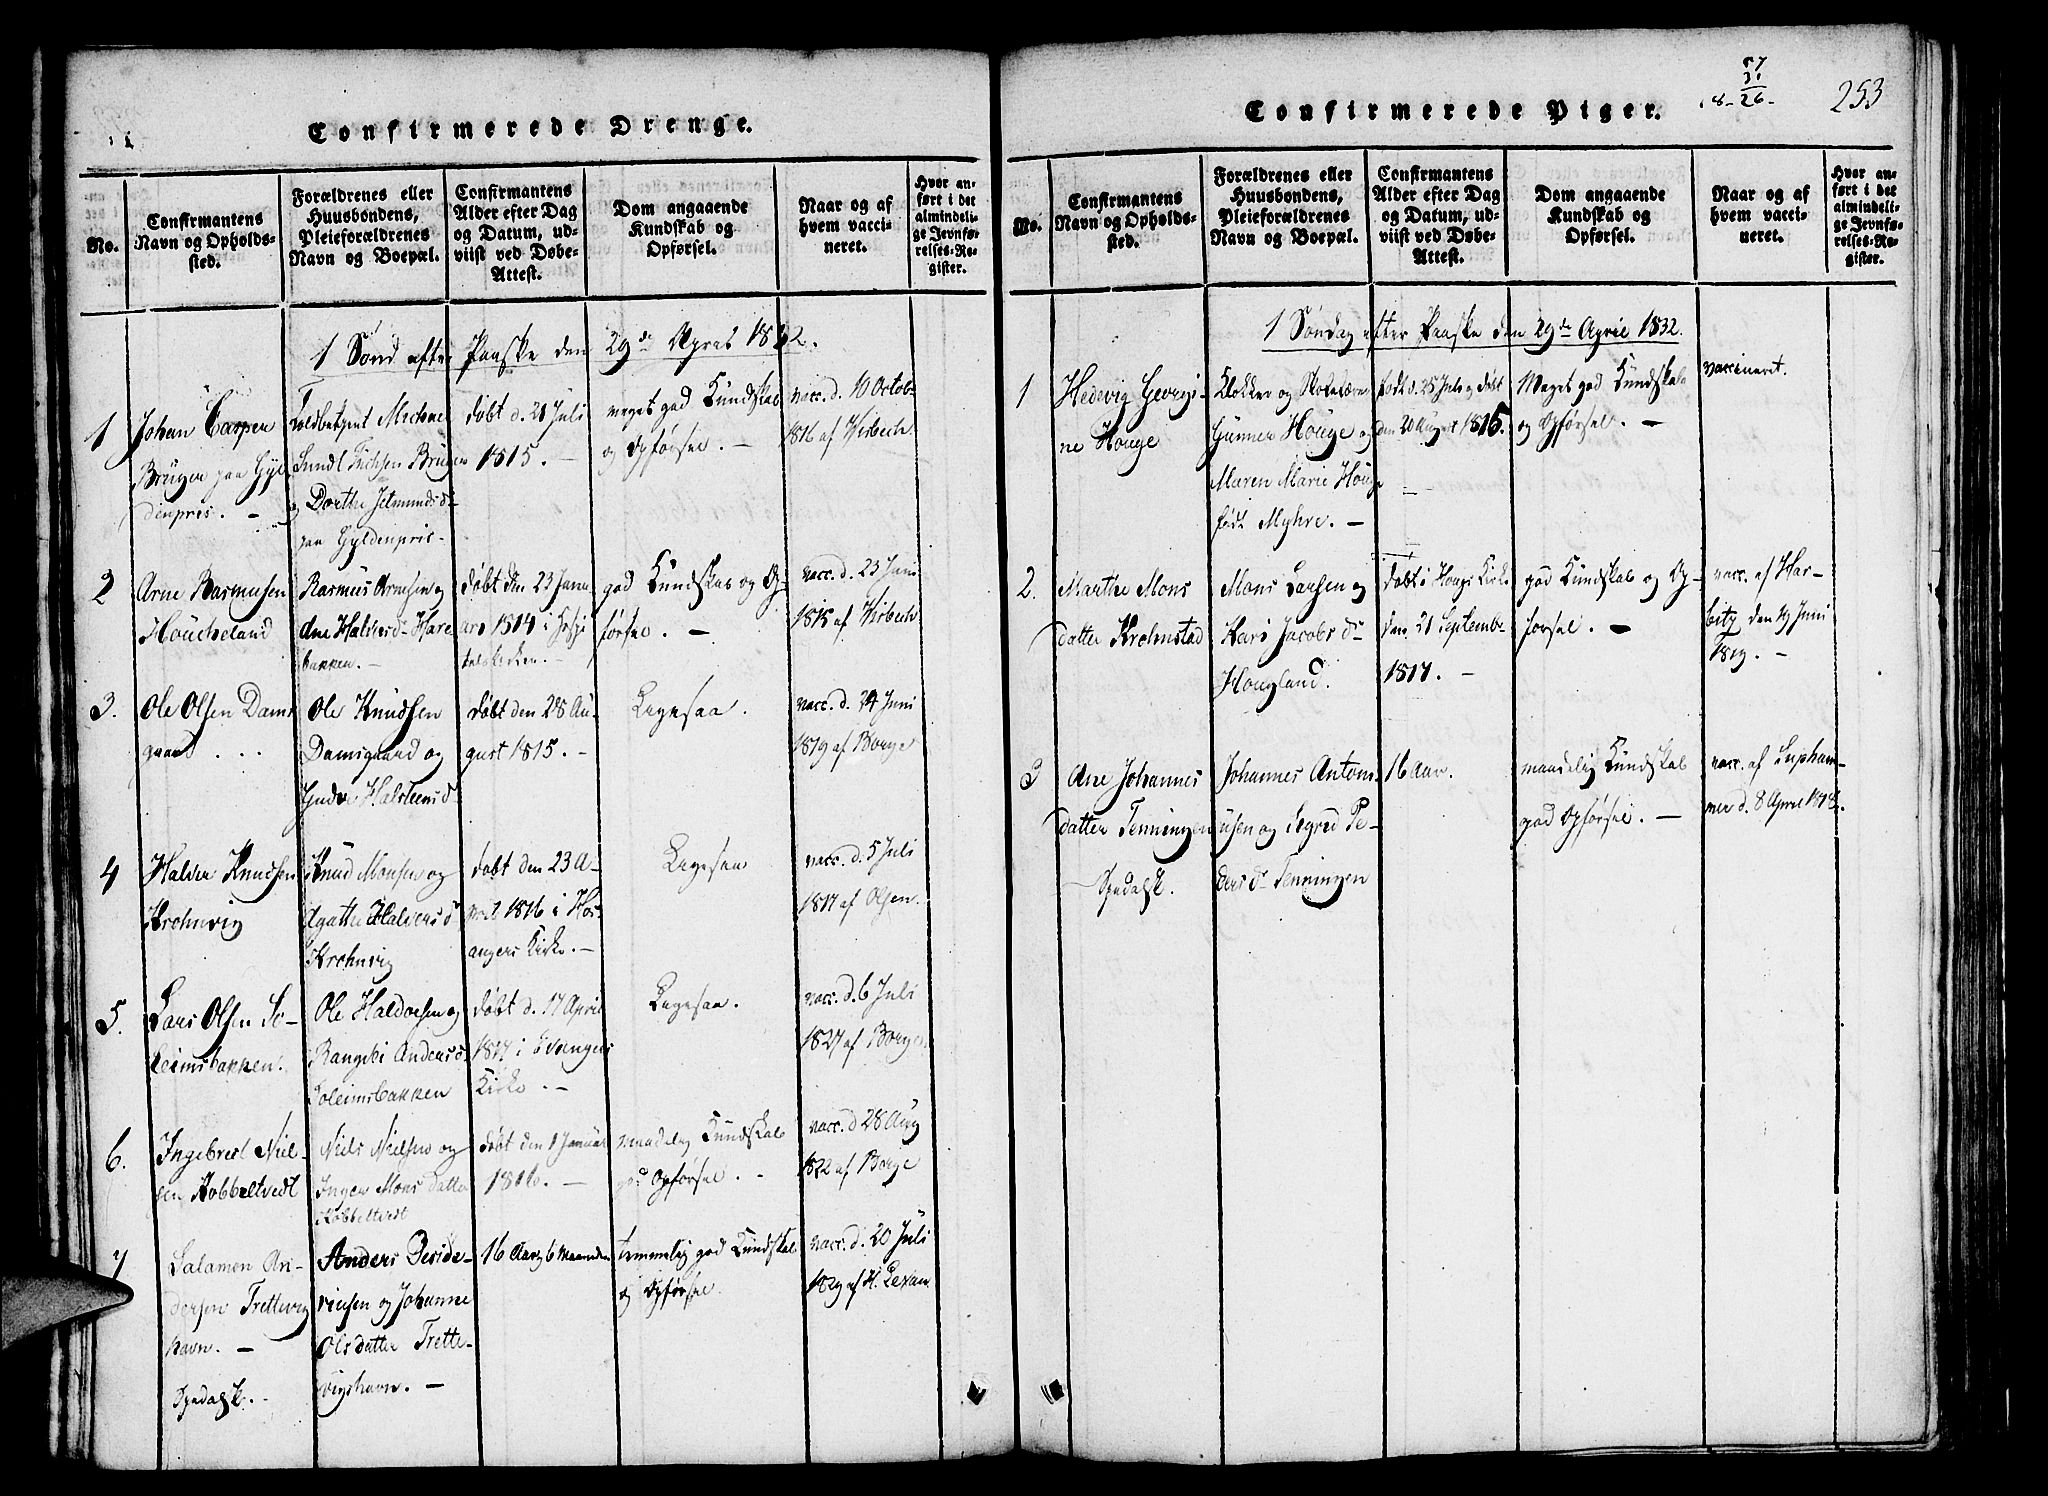 Confirmerede Drenge.
No.
Confirmantens
Navn og Opholds-
sted.
Forældrenes eller
Huusbondens,
Pleieforældrenes
Navn og Boepæl.
Confirmantens
Alder efter Dag
og Datum, ud-
viist ved Døbe-
Attest.
Dom angaaende
Kundskab og
Opførsel.
Naar og af
hvem vacci-
neret.
Hvor an-
ført i det
almindeli-
ge Jevnfø-
relses-Re-
gister.
1 Sønd. efter Paaske den 29de April 1832.
1
Johan Carsten
Brüger paa Gyl
denpris. -
Toldbetjent Michael
Sundt Brüger
og Dorthe Jetmundsdr
paa Gyldenpris-
døbt d. 21 Juli
1815. -
meget god Kundskab
og Opførsel. -
vacc. d. 10 Octob.
1816 af Wisbech
2
Arne Rasmusen
Houcheland
Rasmus Arnesen og
Ane Haldorsdr Hare
bakken. -
døbt den 23 Janu
ari 1814 i Hospi
talskirken. -
god Kundskab og Op-
førsel. -
vacc. d. 23 Juni
1815 af Wisbech
3.
Ole Olsen Dams
gaard . . .
Ole Knudsen
Damsgaard og
Halsteensd.
døbt den 28 Au-
gust 1815. -
Ligesaa.
vacc. d. 24 Juni
1819 af Borge
4
Haldor Knudsen
Krohnvig
Knud Monsen og
Agatha Haldorsdr
Krohnvig
døbt den 23 A-
pril 1816 i Hos-
angers Kirke. -
Ligesaa
vacc. d. 5 Juli
1817 af Olsen.
5.
Lars Olsen So-
leimsbakken.
Ole Haldorsen og
Rangele Andersd.
Soleimsbakken
døbt d. 17 April
1817 i Evangers
Kirke. -
Ligesaa.
vacc. d. 6 Juli
1827 af Borgen
6.
Ingebret Niel-
sen Kobbeltvedt
Niels Nielsen og
Inger Mons datter
Kobbeltvedt
døbt den 1 Januar
1816. -
maadelig Kundskab
god Opførsel. -
vacc. d 28 Aug
1822 af Borge
7
Salamon An-
dersen Trettevig
havn. -
Spedalsk. -
Anders Deside-
riusen og Johanne
Olsdatter Trette-
vigshavn. -
16 Aar 6 Maaneder
temmelig god Kundskab
og Opførsel.
vacc. d. 20 Juli
1829 af H. Lexau
Confirmerede Piger.
57
31
26 -
253
No.
Confirmantens
Navn og Opholds-
sted.
Forældrenes eller
Huusbondens,
Pleieforældrenes
Navn og Boepæl.
Confirmantens
Alder efter Dag
og Datum, ud-
viist ved Døbe-
Attest.
Dom angaaende
Kundskab og
Opførsel.
Naar og af
hvem vacci-
neret.
Hvor an-
ført i det
almindeli-
ge Jevnfø-
relses-Re-
gister.
1 Søndag efter Paaske den 29de April 1832.
1
Hedevig Georgi-
ne Houge
Klokker og Skolelærer
Gunner Houge og
Maren Marie Houge
født Myhre. -
født d. 25 Juli og døbt
den 20 August 1815.
Meget god Kundskab
og Opførsel. -
vaccineret.
2.
Marthe Mons
datter Krohnstad
Mons Larsen og
Kari Jacobsdr
Hougland.
døbt i Hougs Kirke
den 21 Septembe
1817. -
god Kundskab og Op-
førsel. -
vacc. af Har-
bitz den 19 Juni
1819. -
3
Ane Johannes
datter Tenningen
Spedalsk.
Johannes Anton-
iusen og Sigred Pe-
dersdr Tenningen
16 Aar.
maadelig Kundskab
god Opførsel. -
vacc. af Supham-
mer d. 8 April 1818.